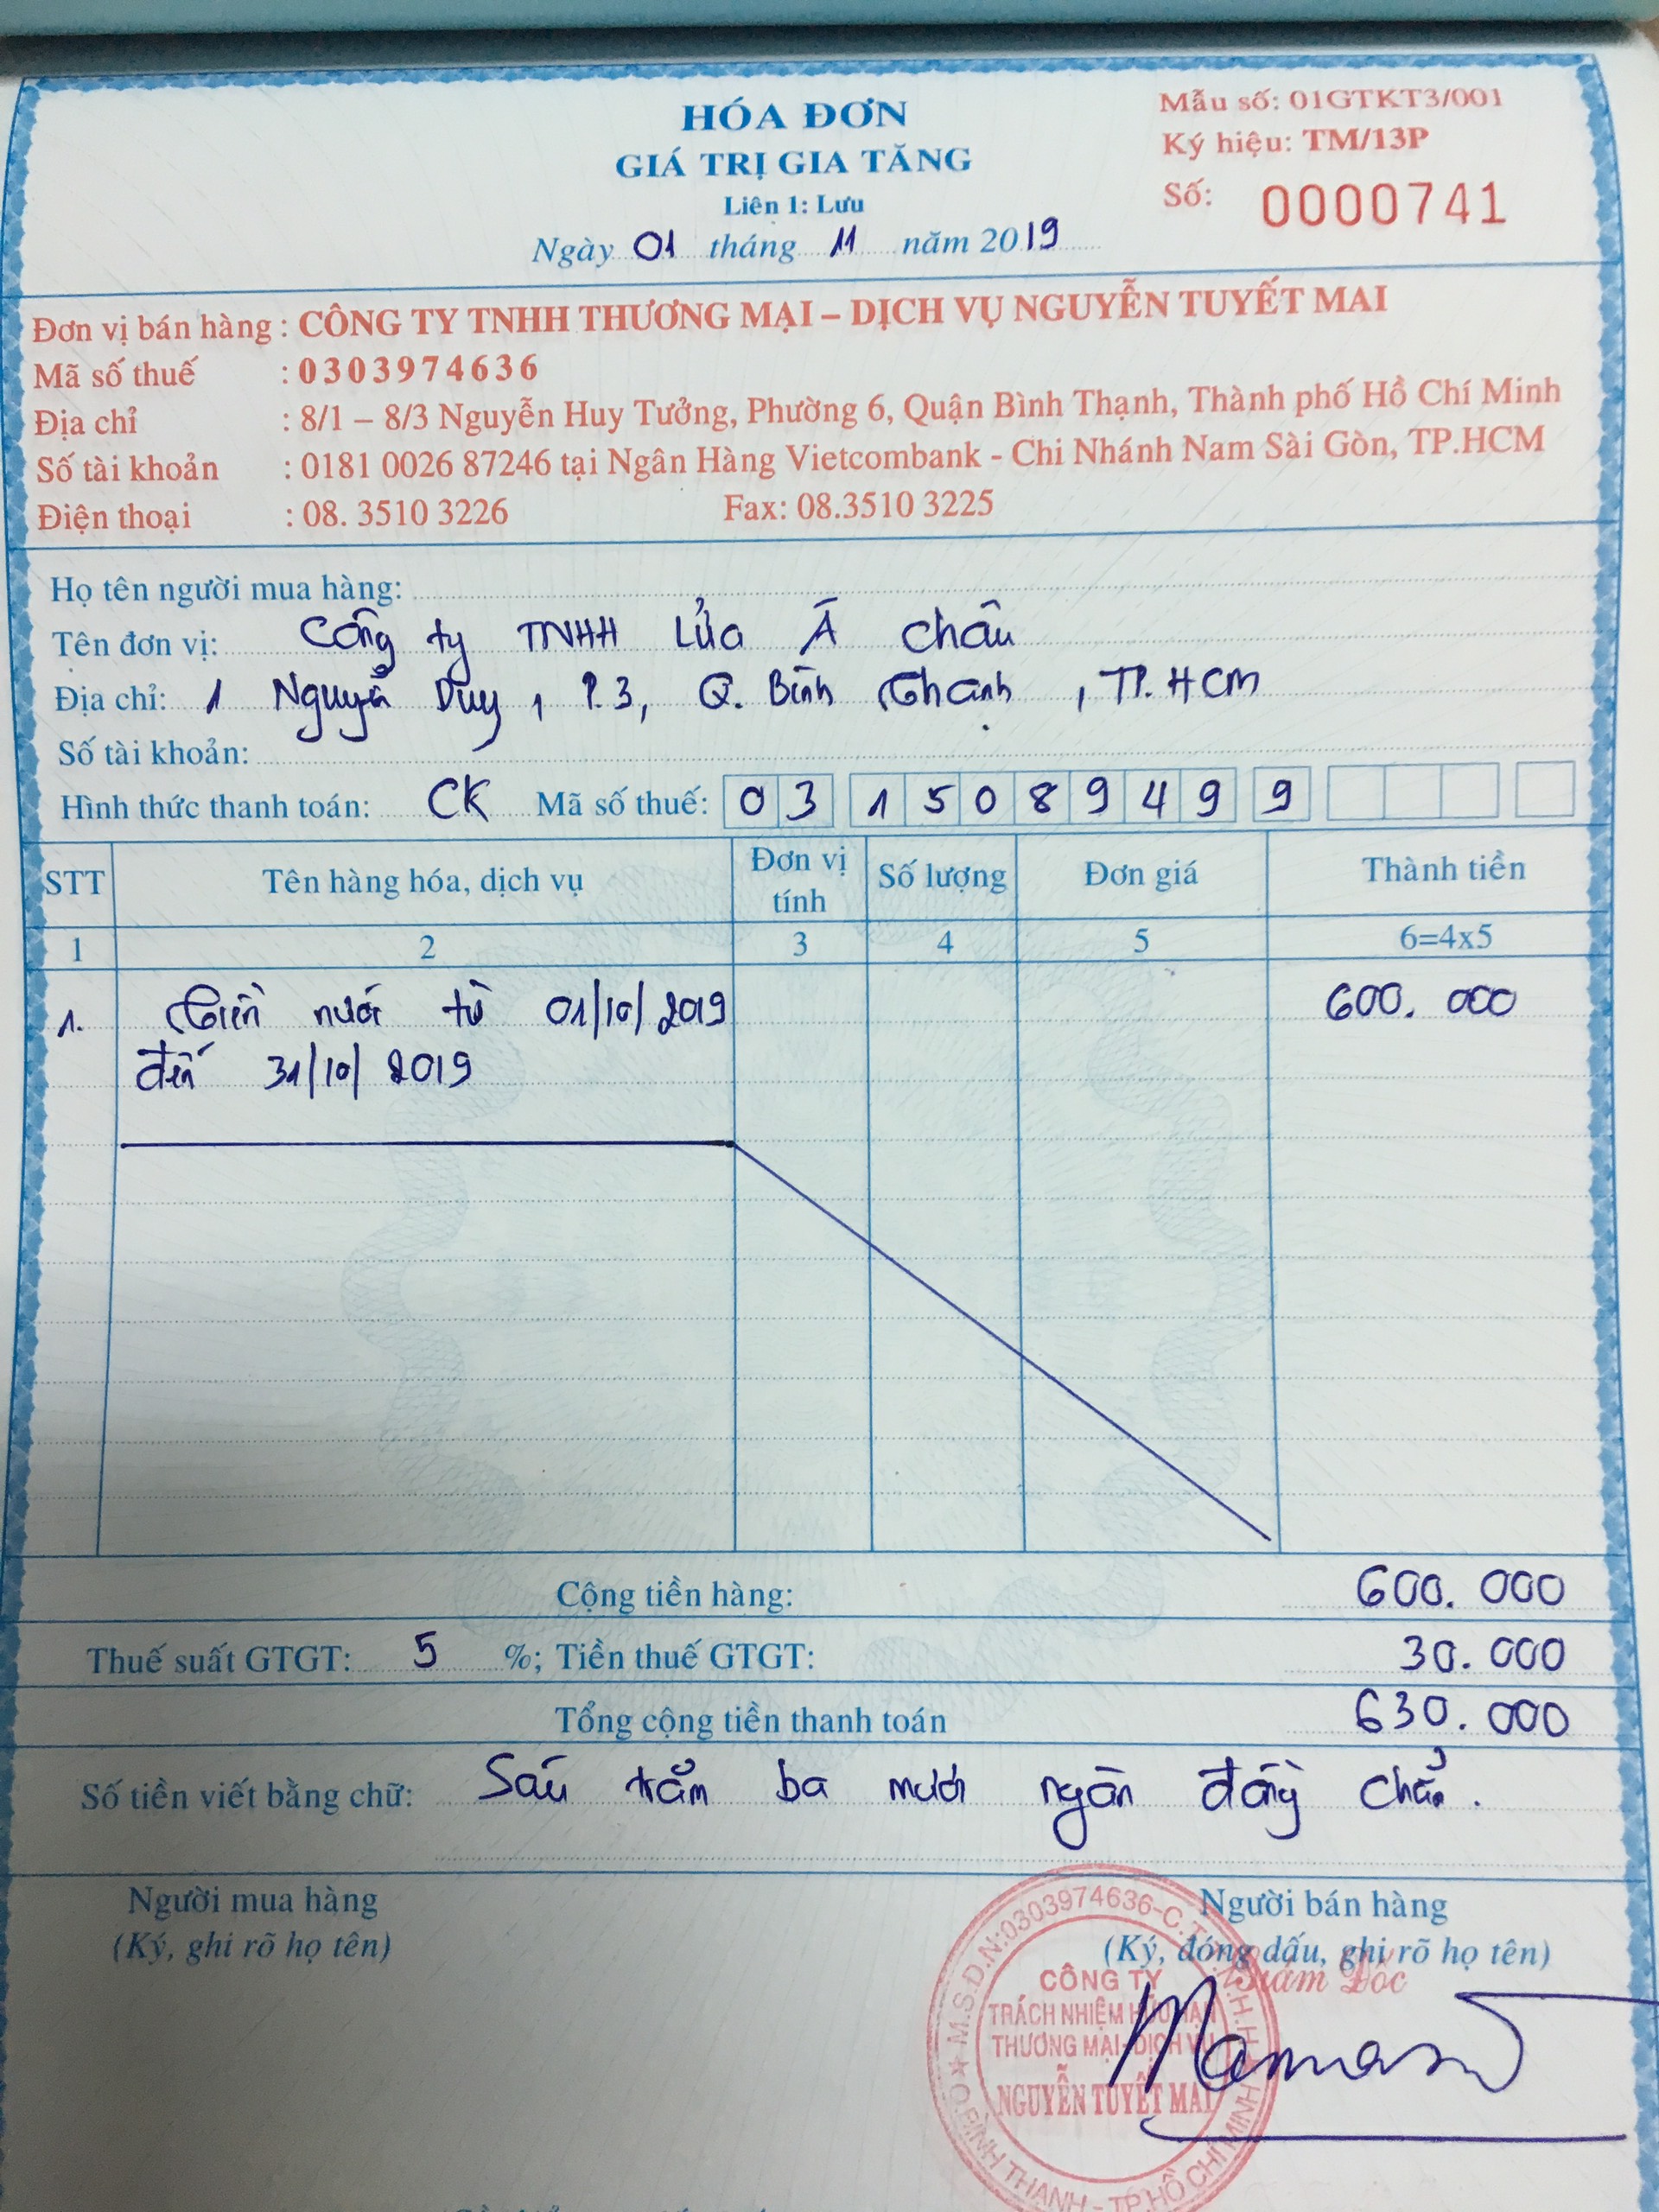 HÓA ĐƠN
GIÁ TRỊ GIA TĂNG
Liên 1: Lưu
Ngày 01 tháng 11 năm 2019
Mẫu số: 01GTKT3/001
Ký hiệu: TM/13P
Số: 0000741
Đơn vị bán hàng : CÔNG TY TNHH THƯƠNG MẠI – DỊCH VỤ NGUYỄN TUYẾT MAI
Mã số thuế : 0303974636
Địa chỉ : 8/1 – 8/3 Nguyễn Huy Tưởng, Phường 6, Quận Bình Thạnh, Thành phố Hồ Chí Minh
Số tài khoản : 0181 0026 87246 tại Ngân Hàng Vietcombank - Chi Nhánh Nam Sài Gòn, TP.HCM
Điện thoại : 08. 3510 3226 Fax: 08.3510 3225
Họ tên người mua hàng:
Tên đơn vị: Công ty TNHH Lửa Á Châu
Địa chỉ: 1 Nguyễn Duy, P.3, Q. Bình Thạnh, TP. HCM
Số tài khoản:
Hình thức thanh toán: CK Mã số thuế: 03 1508949 9
STT Tên hàng hóa, dịch vụ Đơn vị tính Số lượng Đơn giá Thành tiền
1 2 3 4 5 6=4x5
1. Tiền nước từ 01/10/2019 600.000
đến 31/10/2019
Cộng tiền hàng: 600.000
Thuế suất GTGT: 5 %; Tiền thuế GTGT: 30.000
Tổng cộng tiền thanh toán 630.000
Số tiền viết bằng chữ: Sáu trăm ba mươi ngàn đồng chẵn.
Người mua hàng
(Ký, ghi rõ họ tên)
Người bán hàng
(Ký, đóng dấu, ghi rõ họ tên)
Giám Đốc
M.S.D.N:0303974636-C.T.T.N.H.H
CÔNG TY
TRÁCH NHIỆM HỮU HẠN
THƯƠNG MẠI-DỊCH VỤ
NGUYỄN TUYẾT MAI
Q.BÌNH THẠNH - TP.HỒ CHÍ MINH